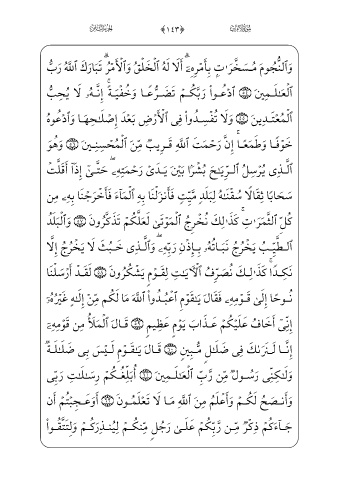 سورة الأعراف ﴿١٤٣﴾ الجزء الثامن
وَٱلنُّجُومَ مُسَخَّرَٰتٍۭ بِأَمْرِهِۦٓ ۗ أَلَا لَهُ ٱلْخَلْقُ وَٱلْأَمْرُ ۗ تَبَارَكَ ٱللَّهُ رَبُّ
ٱلْعَـٰلَمِينَ ٱدْعُوا۟ رَبَّكُمْ تَضَرُّعًا وَخُفْيَةً ۚ إِنَّهُۥ لَا يُحِبُّ
ٱلْمُعْتَدِينَ وَلَا تُفْسِدُوا۟ فِى ٱلْأَرْضِ بَعْدَ إِصْلَـٰحِهَا وَٱدْعُوهُ
خَوْفًا وَطَمَعًا ۚ إِنَّ رَحْمَتَ ٱللَّهِ قَرِيبٌ مِّنَ ٱلْمُحْسِنِينَ وَهُوَ
ٱلَّذِى يُرْسِلُ ٱلرِّيَـٰحَ بُشْرًۢا بَيْنَ يَدَىْ رَحْمَتِهِۦ ۖ حَتَّىٰٓ إِذَآ أَقَلَّتْ
سَحَابًا ثِقَالًا سُقْنَـٰهُ لِبَلَدٍ مَّيِّتٍ فَأَنزَلْنَا بِهِ ٱلْمَآءَ فَأَخْرَجْنَا بِهِۦ مِن
كُلِّ ٱلثَّمَرَٰتِ ۚ كَذَٰلِكَ نُخْرِجُ ٱلْمَوْتَىٰ لَعَلَّكُمْ تَذَكَّرُونَ وَٱلْبَلَدُ
ٱلطَّيِّبُ يَخْرُجُ نَبَاتُهُۥ بِإِذْنِ رَبِّهِۦ ۖ وَٱلَّذِى خَبُثَ لَا يَخْرُجُ إِلَّا
نَكِدًا ۚ كَذَٰلِكَ نُصَرِّفُ ٱلْـَٔايَـٰتِ لِقَوْمٍ يَشْكُرُونَ لَقَدْ أَرْسَلْنَا
نُوحًا إِلَىٰ قَوْمِهِۦ فَقَالَ يَـٰقَوْمِ ٱعْبُدُوا۟ ٱللَّهَ مَا لَكُم مِّنْ إِلَـٰهٍ غَيْرُهُۥٓ
إِنِّىٓ أَخَافُ عَلَيْكُمْ عَذَابَ يَوْمٍ عَظِيمٍ قَالَ ٱلْمَلَأُ مِن قَوْمِهِۦٓ
إِنَّا لَنَرَىٰكَ فِى ضَلَـٰلٍ مُّبِينٍ قَالَ يَـٰقَوْمِ لَيْسَ بِى ضَلَـٰلَةٌ
وَلَـٰكِنِّى رَسُولٌ مِّن رَّبِّ ٱلْعَـٰلَمِينَ أُبَلِّغُكُمْ رِسَـٰلَـٰتِ رَبِّى
وَأَنصَحُ لَكُمْ وَأَعْلَمُ مِنَ ٱللَّهِ مَا لَا تَعْلَمُونَ أَوَعَجِبْتُمْ أَن
جَآءَكُمْ ذِكْرٌ مِّن رَّبِّكُمْ عَلَىٰ رَجُلٍ مِّنكُمْ لِيُنذِرَكُمْ وَلِتَتَّقُوا۟